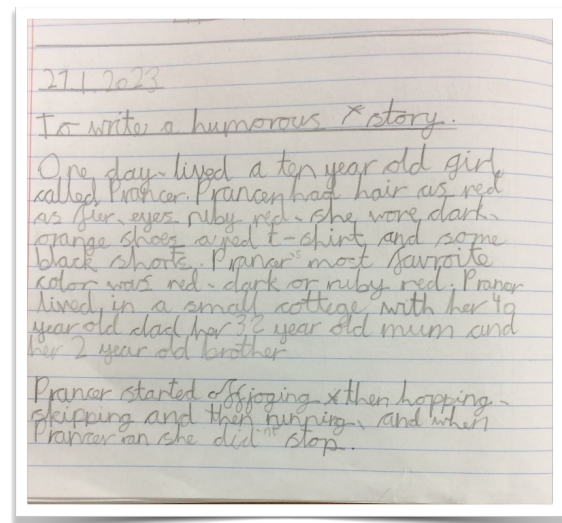 27.1.2023
To write a humorous story.
One day lived a ten year old girl
called Prancer. Prancer had hair as red
as fur, eyes ruby red. she wore dark
orange shoes a red t-shirt and some
black shorts. Prancer's most favroite
color was red. dark or ruby red. Prancer
lived in a small cottege with her 49
year old dad her 32 year old mum and
her 2 year old brother
Prancer started off joging then hopping,
skipping and then running, and when
Prancer ran she did'nt stop.